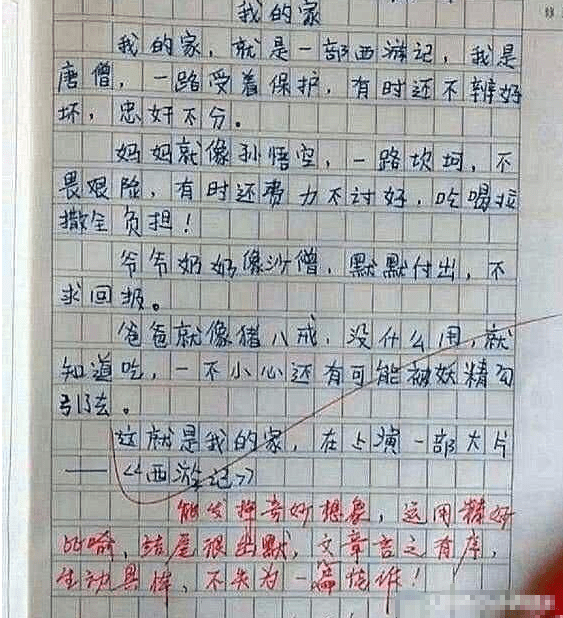 我的家
我的家，就是一部西游记，我是
唐僧，一路受着保护，有时还不辨好
坏，忠奸不分。
妈妈就像孙悟空，一路坎坷，不
畏艰险，有时还费力不讨好，吃喝拉
撒全负担！
爷爷奶奶像沙僧，默默付出，不
求回报。
爸爸就像猪八戒，没什么用，就
知道吃，一不小心还有可能被妖精勾
引去。
这就是我的家，在上演一部大片
——《西游记》
能发挥奇妙想象，运用精妙
的喻，结尾很幽默，文章言之有序，
生动具体，不失为一篇佳作！